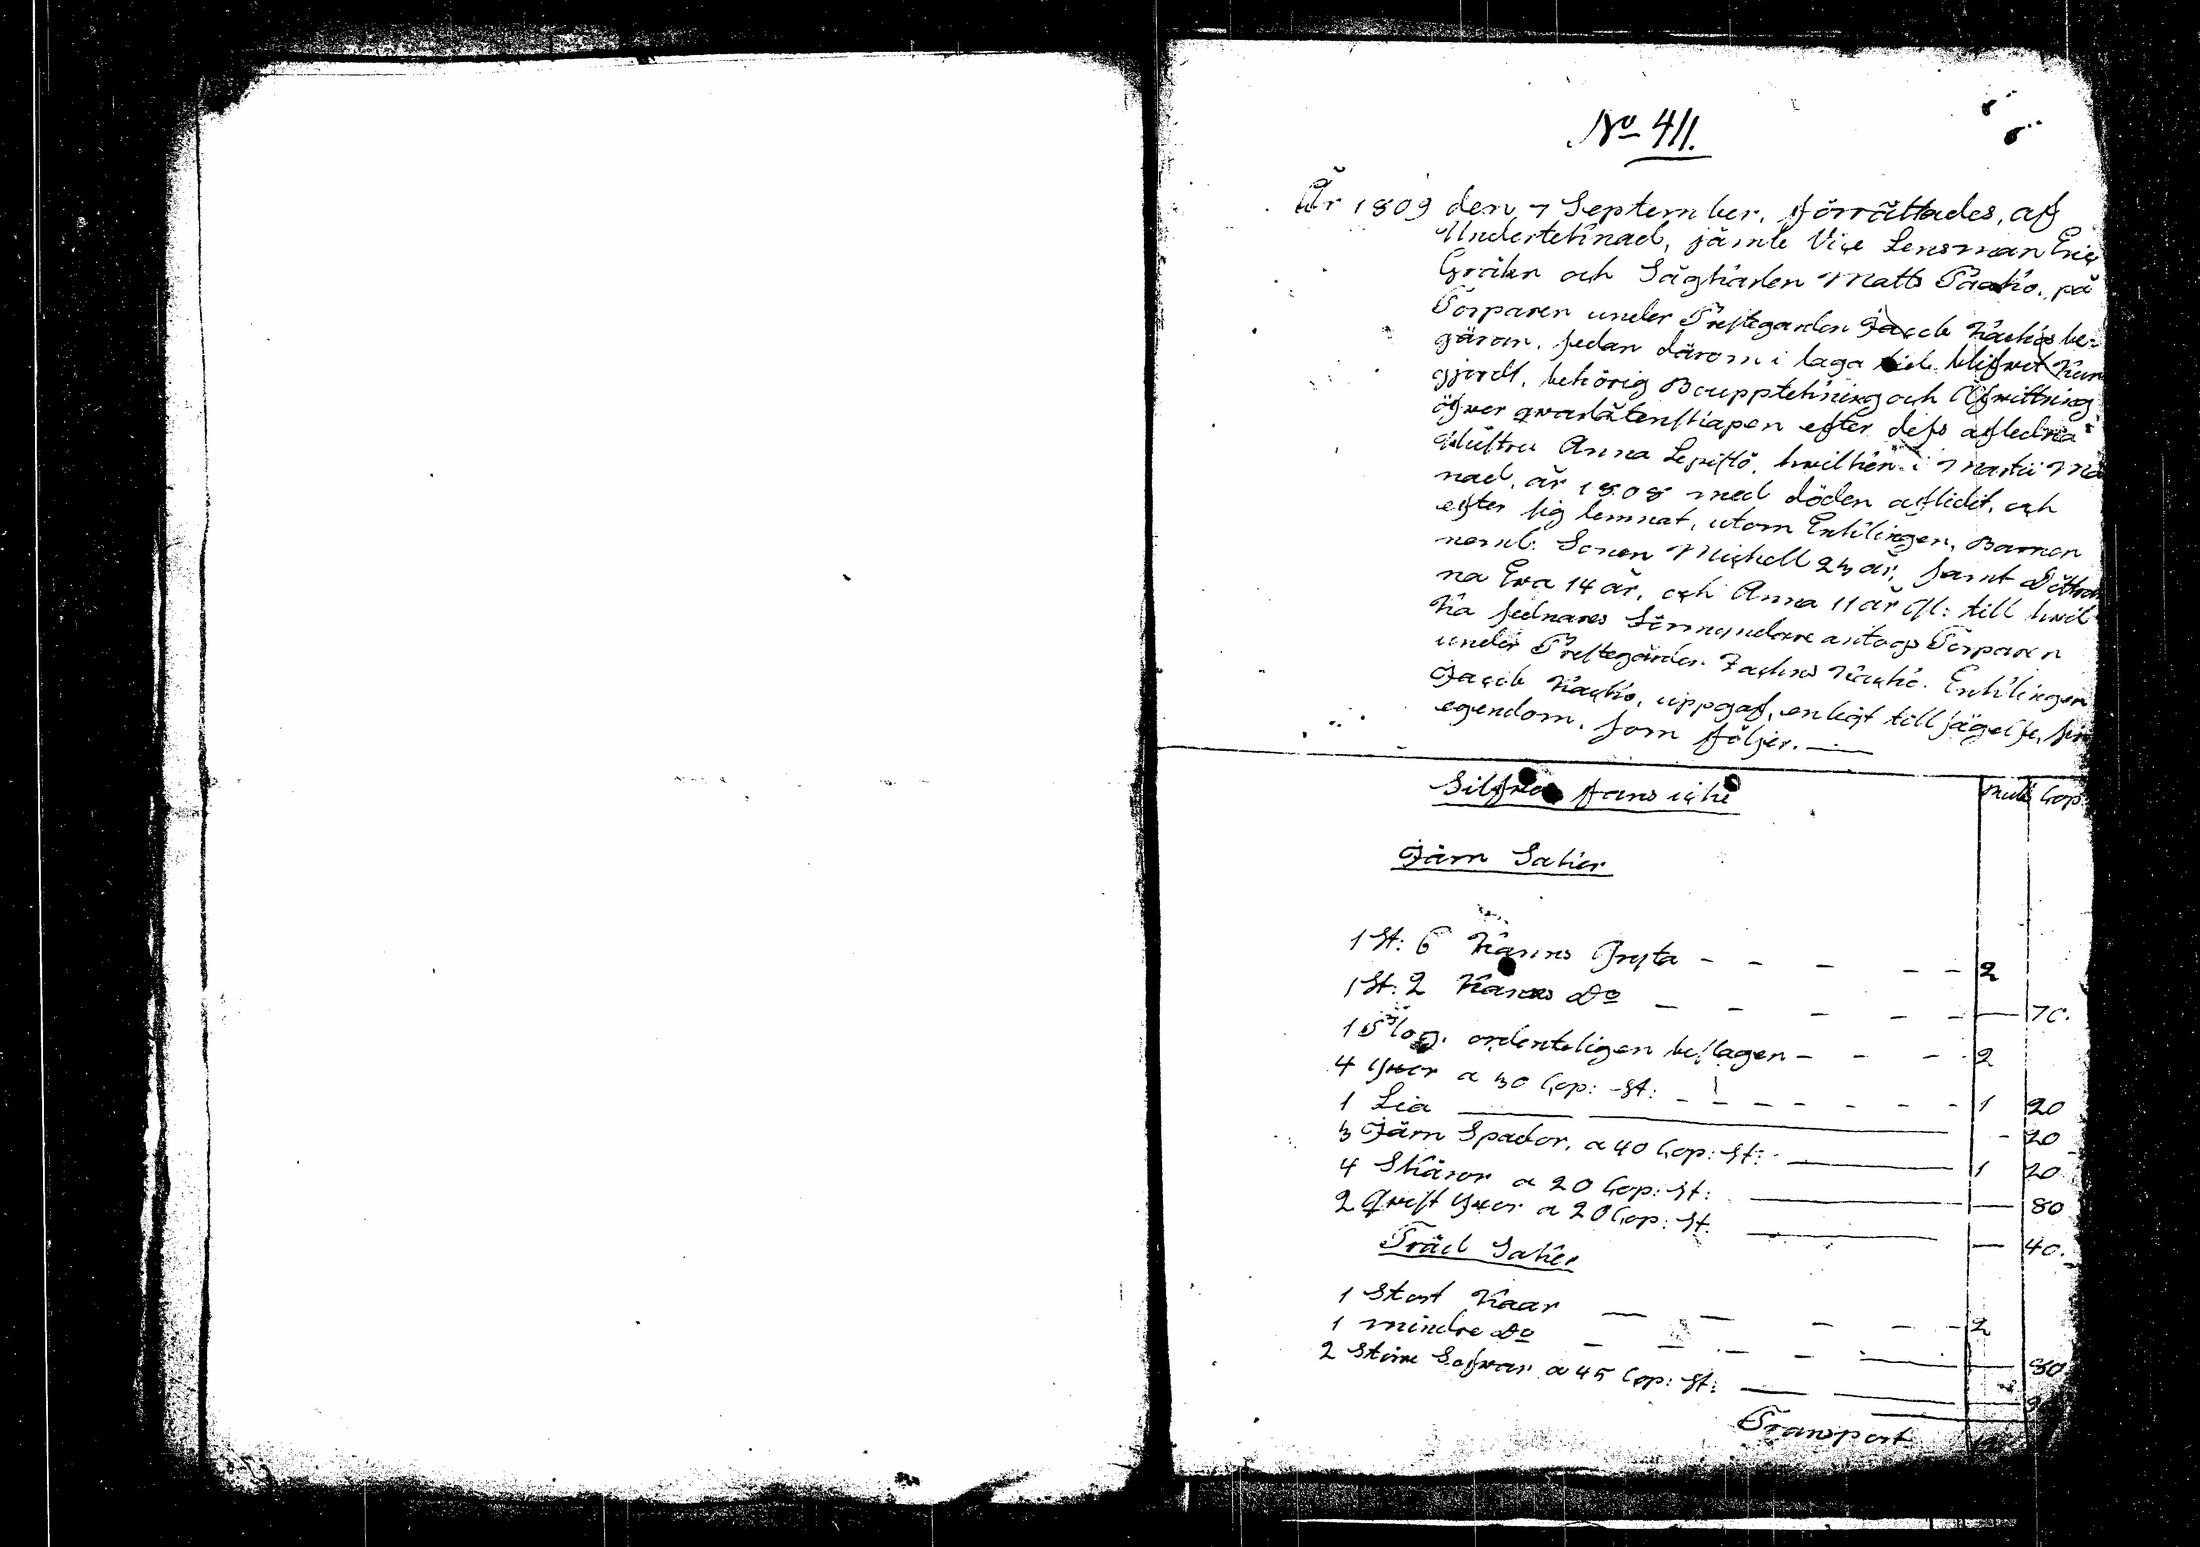 No 411.
År 1809 den 7 September, förrättades, af
Underteknad, jämte Vice Lensman Eric
Grähn och Säghäden Matts Paaho, på
Torparen under Prestegården Jacob Kauhos be-
gäran, sedan därom i laga tid blifvit kun
gjordt, behörig Bouppteckning och Afwittring
öfwer qwarlåtenskapen efter dess aflidna
Hustru Anna Lepistö, hwilken i Martii Må
nad, år 1808 med döden aflidit, och
efter sig lemnat, utom Enklingen, Barnen
neml: Sonen Michell 23 år, samt Döttrar
na Eva 14 år, och Anna 11 år Gl: till hwil
ka sednares Förmyndare antogs Torparen
under Prestegården. Enklingen
Jacob uppgaf, enligt tillsägelse, sin
egendom, som följer.
Silfver fans icke
Rub Cop
Järn Saker
1 St: 6 Kanns Gryta 2
1 St: 2 Kanns Do 70.
1 Plog, ordenteligen beslagen 2
4 Yxor a 30 Cop: St: 1 20
1 Lia 20
3 Järn Spador, a 40 Cop: St: 1 20
4 Skäror a 20 Cop: St: 80
2 Qwist Yxor a 20 Cop: St. 40.
Träd Saker
1 Stort Kaar 2
1 mindre Do 80
2 Större Såfwar a 45 Cop: St:
Transport